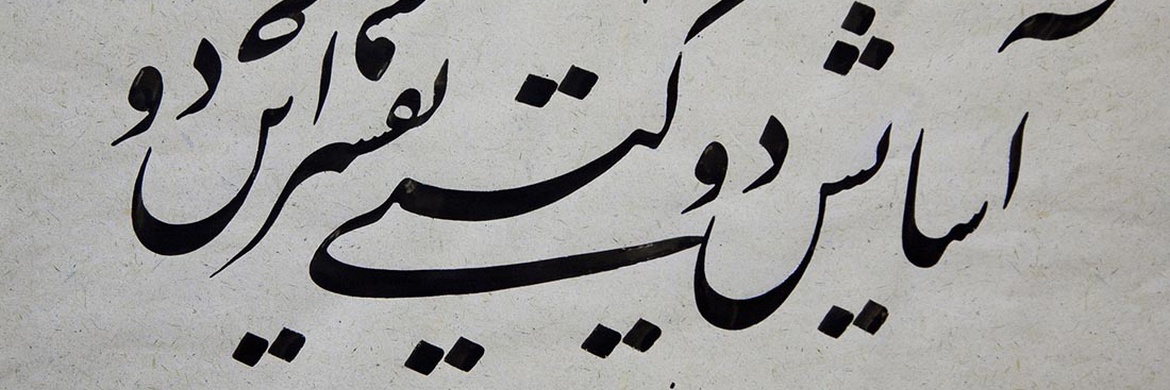 آسایش دو گیتی تفسیر این دو